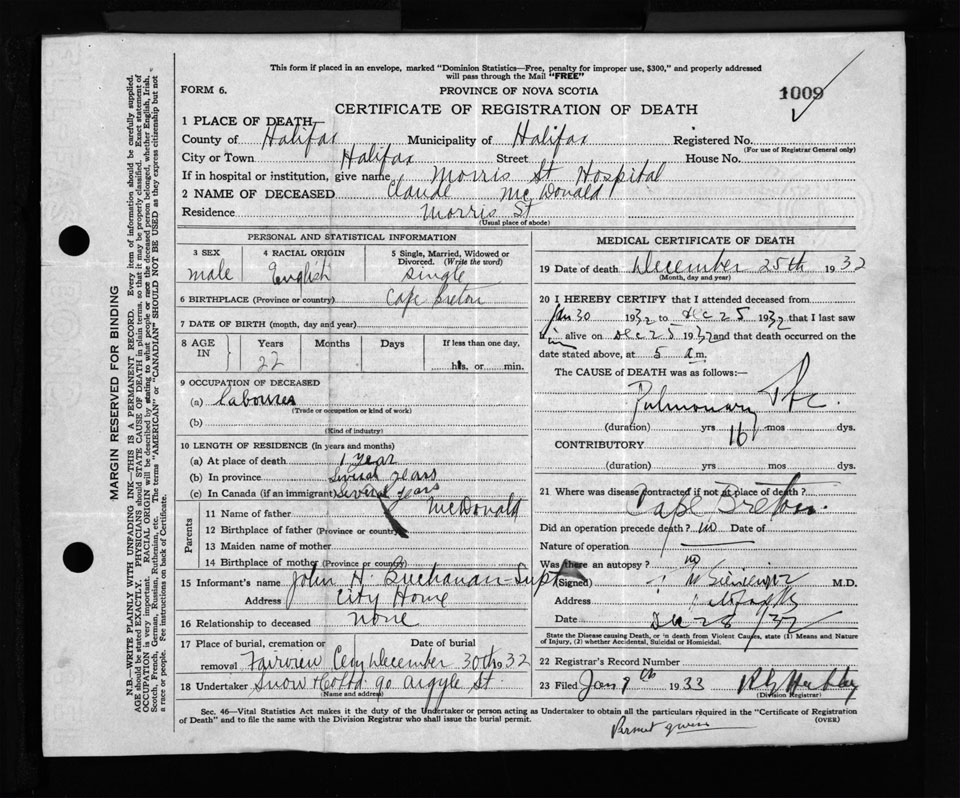 This form if placed in an envelope, marked "Dominion Statistics—Free, penalty for improper use, $300," and properly addressed
will pass through the Mail "FREE"
FORM 6.
PROVINCE OF NOVA SCOTIA
1009
CERTIFICATE OF REGISTRATION OF DEATH
1 PLACE OF DEATH
County of Halifax Municipality of Halifax Registered No.
(For use of Registrar General only)
City or Town Halifax Street House No.
If in hospital or institution, give name Morris St Hospital
2 NAME OF DECEASED Claude McDonald
Residence Morris St
(Usual place of abode)
PERSONAL AND STATISTICAL INFORMATION
3 SEX male
4 RACIAL ORIGIN English
5 Single, Married, Widowed or Divorced. (Write the word) single
6 BIRTHPLACE (Province or country) Cape Breton
7 DATE OF BIRTH (month, day and year)
8 AGE IN Years Months Days If less than one day,
22 hrs. or min.
9 OCCUPATION OF DECEASED
(a) Labourer
(Trade or occupation or kind of work)
(b)
(Kind of industry)
10 LENGTH OF RESIDENCE (In years and months)
(a) At place of death 1 year
(b) In province Several years
(c) In Canada (if an immigrant) several years
Parents
11 Name of father McDonald
12 Birthplace of father (Province or country)
13 Maiden name of mother
14 Birthplace of mother (Province or country)
15 Informant's name John H. Buchanan Supt
Address City Home
16 Relationship to deceased none
17 Place of burial, cremation or removal Fairview Cemy
Date of burial December 30th 1932
18 Undertaker Snow & Co Ltd. 90 Argyle St
Name and address
MEDICAL CERTIFICATE OF DEATH
19 Date of death December 25th 1932
(Month, day and year)
20 I HEREBY CERTIFY that I attended deceased from
Jan 30 1932 to Dec 25 1932 that I last saw
him alive on Dec 25 1932 and that death occurred on the
date stated above, at 5 a.m.
The CAUSE of DEATH was as follows:—
Pulmonary Tbc.
(duration) yrs 16 mos dys.
CONTRIBUTORY
(duration) yrs. mos dys.
21 Where was disease contracted if not at place of death?
Cape Breton.
Did an operation precede death? no Date of
Nature of operation
Was there an autopsy? no
(Signed) M.D.
Address
Date Dec 28/32
State the Disease causing Death, or in death from Violent Causes, state (1) Means and Nature
of Injury, (2) whether Accidental, Suicidal or Homicidal.
22 Registrar's Record Number
23 Filed Jan 9th 1933
(Division Registrar)
Sec. 46—Vital Statistics Act makes it the duty of the Undertaker or person acting as Undertaker to obtain all the particulars required in the "Certificate of Registration
of Death" and to file the same with the Division Registrar who shall issue the burial permit.
(OVER)
Permit given
MARGIN RESERVED FOR BINDING
N.B.—WRITE PLAINLY WITH UNFADING INK—THIS IS A PERMANENT RECORD. Every item of information should be carefully supplied.
AGE should be stated EXACTLY. PHYSICIANS should STATE CAUSE OF DEATH in plain terms, so that it may be properly classified. Exact statement of
OCCUPATION is very important. RACIAL ORIGIN will be described by stating to what people or race the deceased person belonged, whether English, Irish,
Scotch, French, German, Russian, Ruthenian, etc. The terms "AMERICAN" or "CANADIAN" SHOULD NOT BE USED as they express citizenship but not
a race or people. See instructions on back of Certificate.